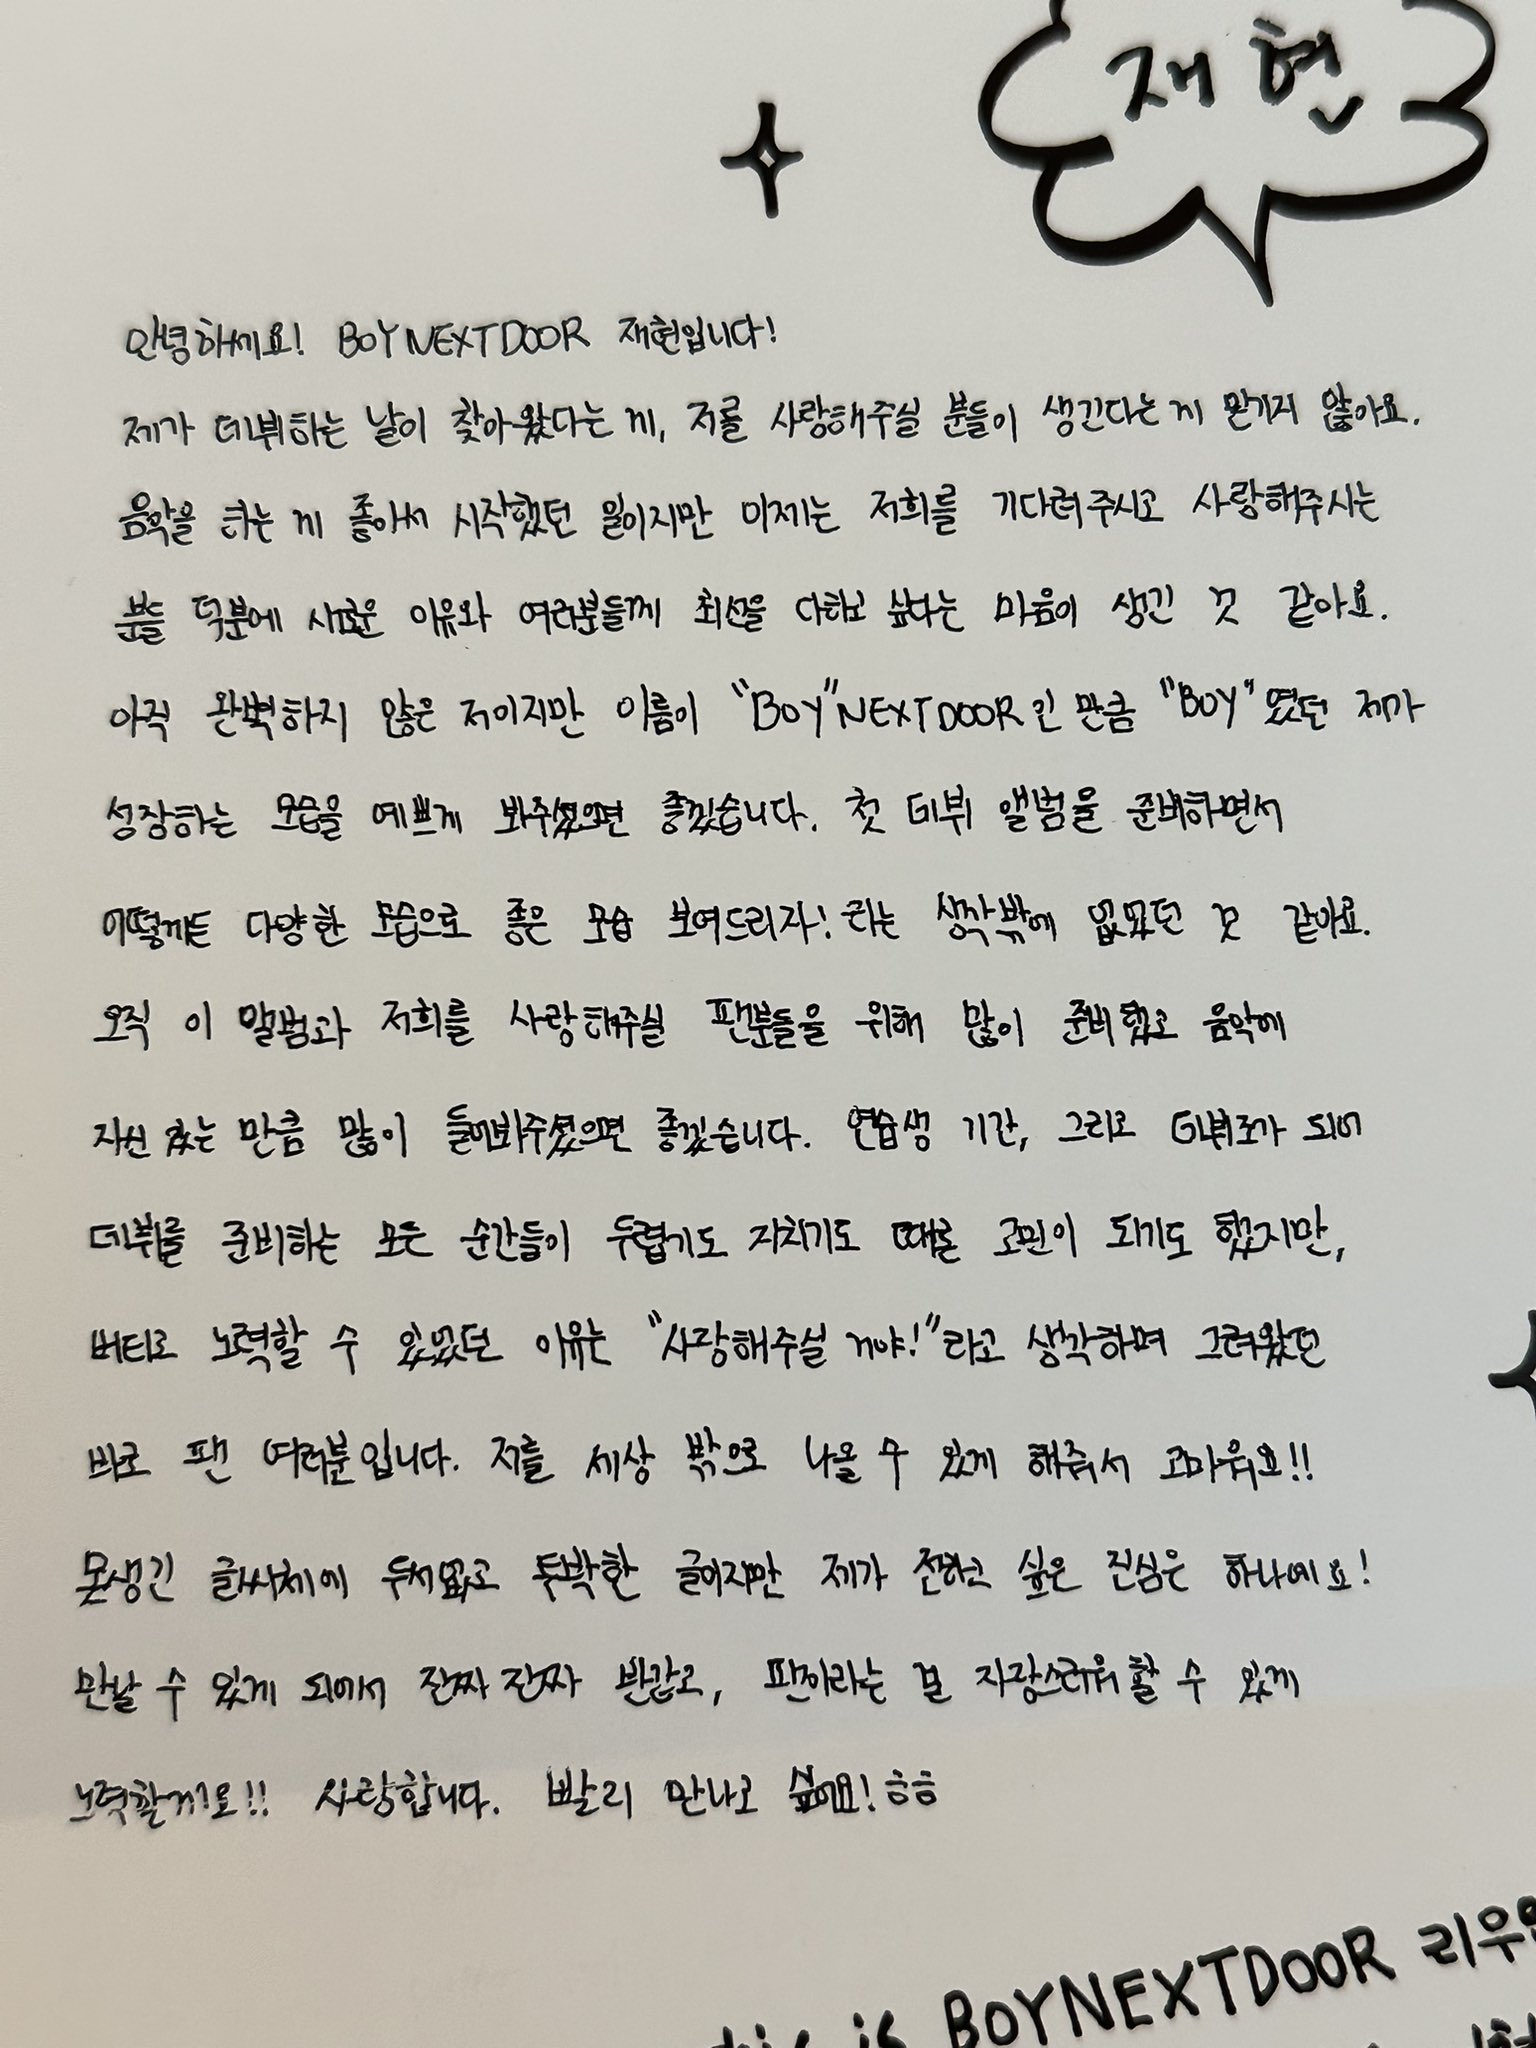 재현
안녕하세요! BOYNEXTDOOR 재현입니다!
제가 데뷔하는 날이 찾아왔다는 게, 저를 사랑해주실 분들이 생긴다는 게 믿기지 않아요.
음악을 하는 게 좋아서 시작했던 일이지만 이제는 저희를 기다려주시고 사랑해주시는
분들 덕분에 새로운 이유와 여러분들께 최선을 다하고 싶다는 마음이 생긴 것 같아요.
아직 완벽하지 않은 저이지만 이름이 "BOY"NEXTDOOR인 만큼 "BOY"였던 제가
성장하는 모습을 예쁘게 봐주셨으면 좋겠습니다. 첫 데뷔 앨범을 준비하면서
어떻게든 다양한 모습으로 좋은 모습 보여드리자! 라는 생각밖에 없었던 것 같아요.
오직 이 앨범과 저희를 사랑해주실 팬분들을 위해 많이 준비했고 음악에
자신 있는 만큼 많이 들어봐주셨으면 좋겠습니다. 연습생 기간, 그리고 데뷔조가 되어
데뷔를 준비하는 모든 순간들이 두렵기도 지치기도 때론 고민이 되기도 했지만,
버티고 노력할 수 있었던 이유는 "사랑해주실 거야!"라고 생각하며 그려왔던
바로 팬 여러분입니다. 저를 세상 밖으로 나올 수 있게 해줘서 고마워요!!
못생긴 글씨체에 두서없고 투박한 글이지만 제가 전하고 싶은 진심은 하나예요!
만날 수 있게 되어서 진짜 진짜 반갑고, 팬이라는 걸 자랑스러워 할 수 있게
노력할게요!! 사랑합니다. 빨리 만나고 싶어요! ㅎㅎ
is BOYNEXTDOOR 리우